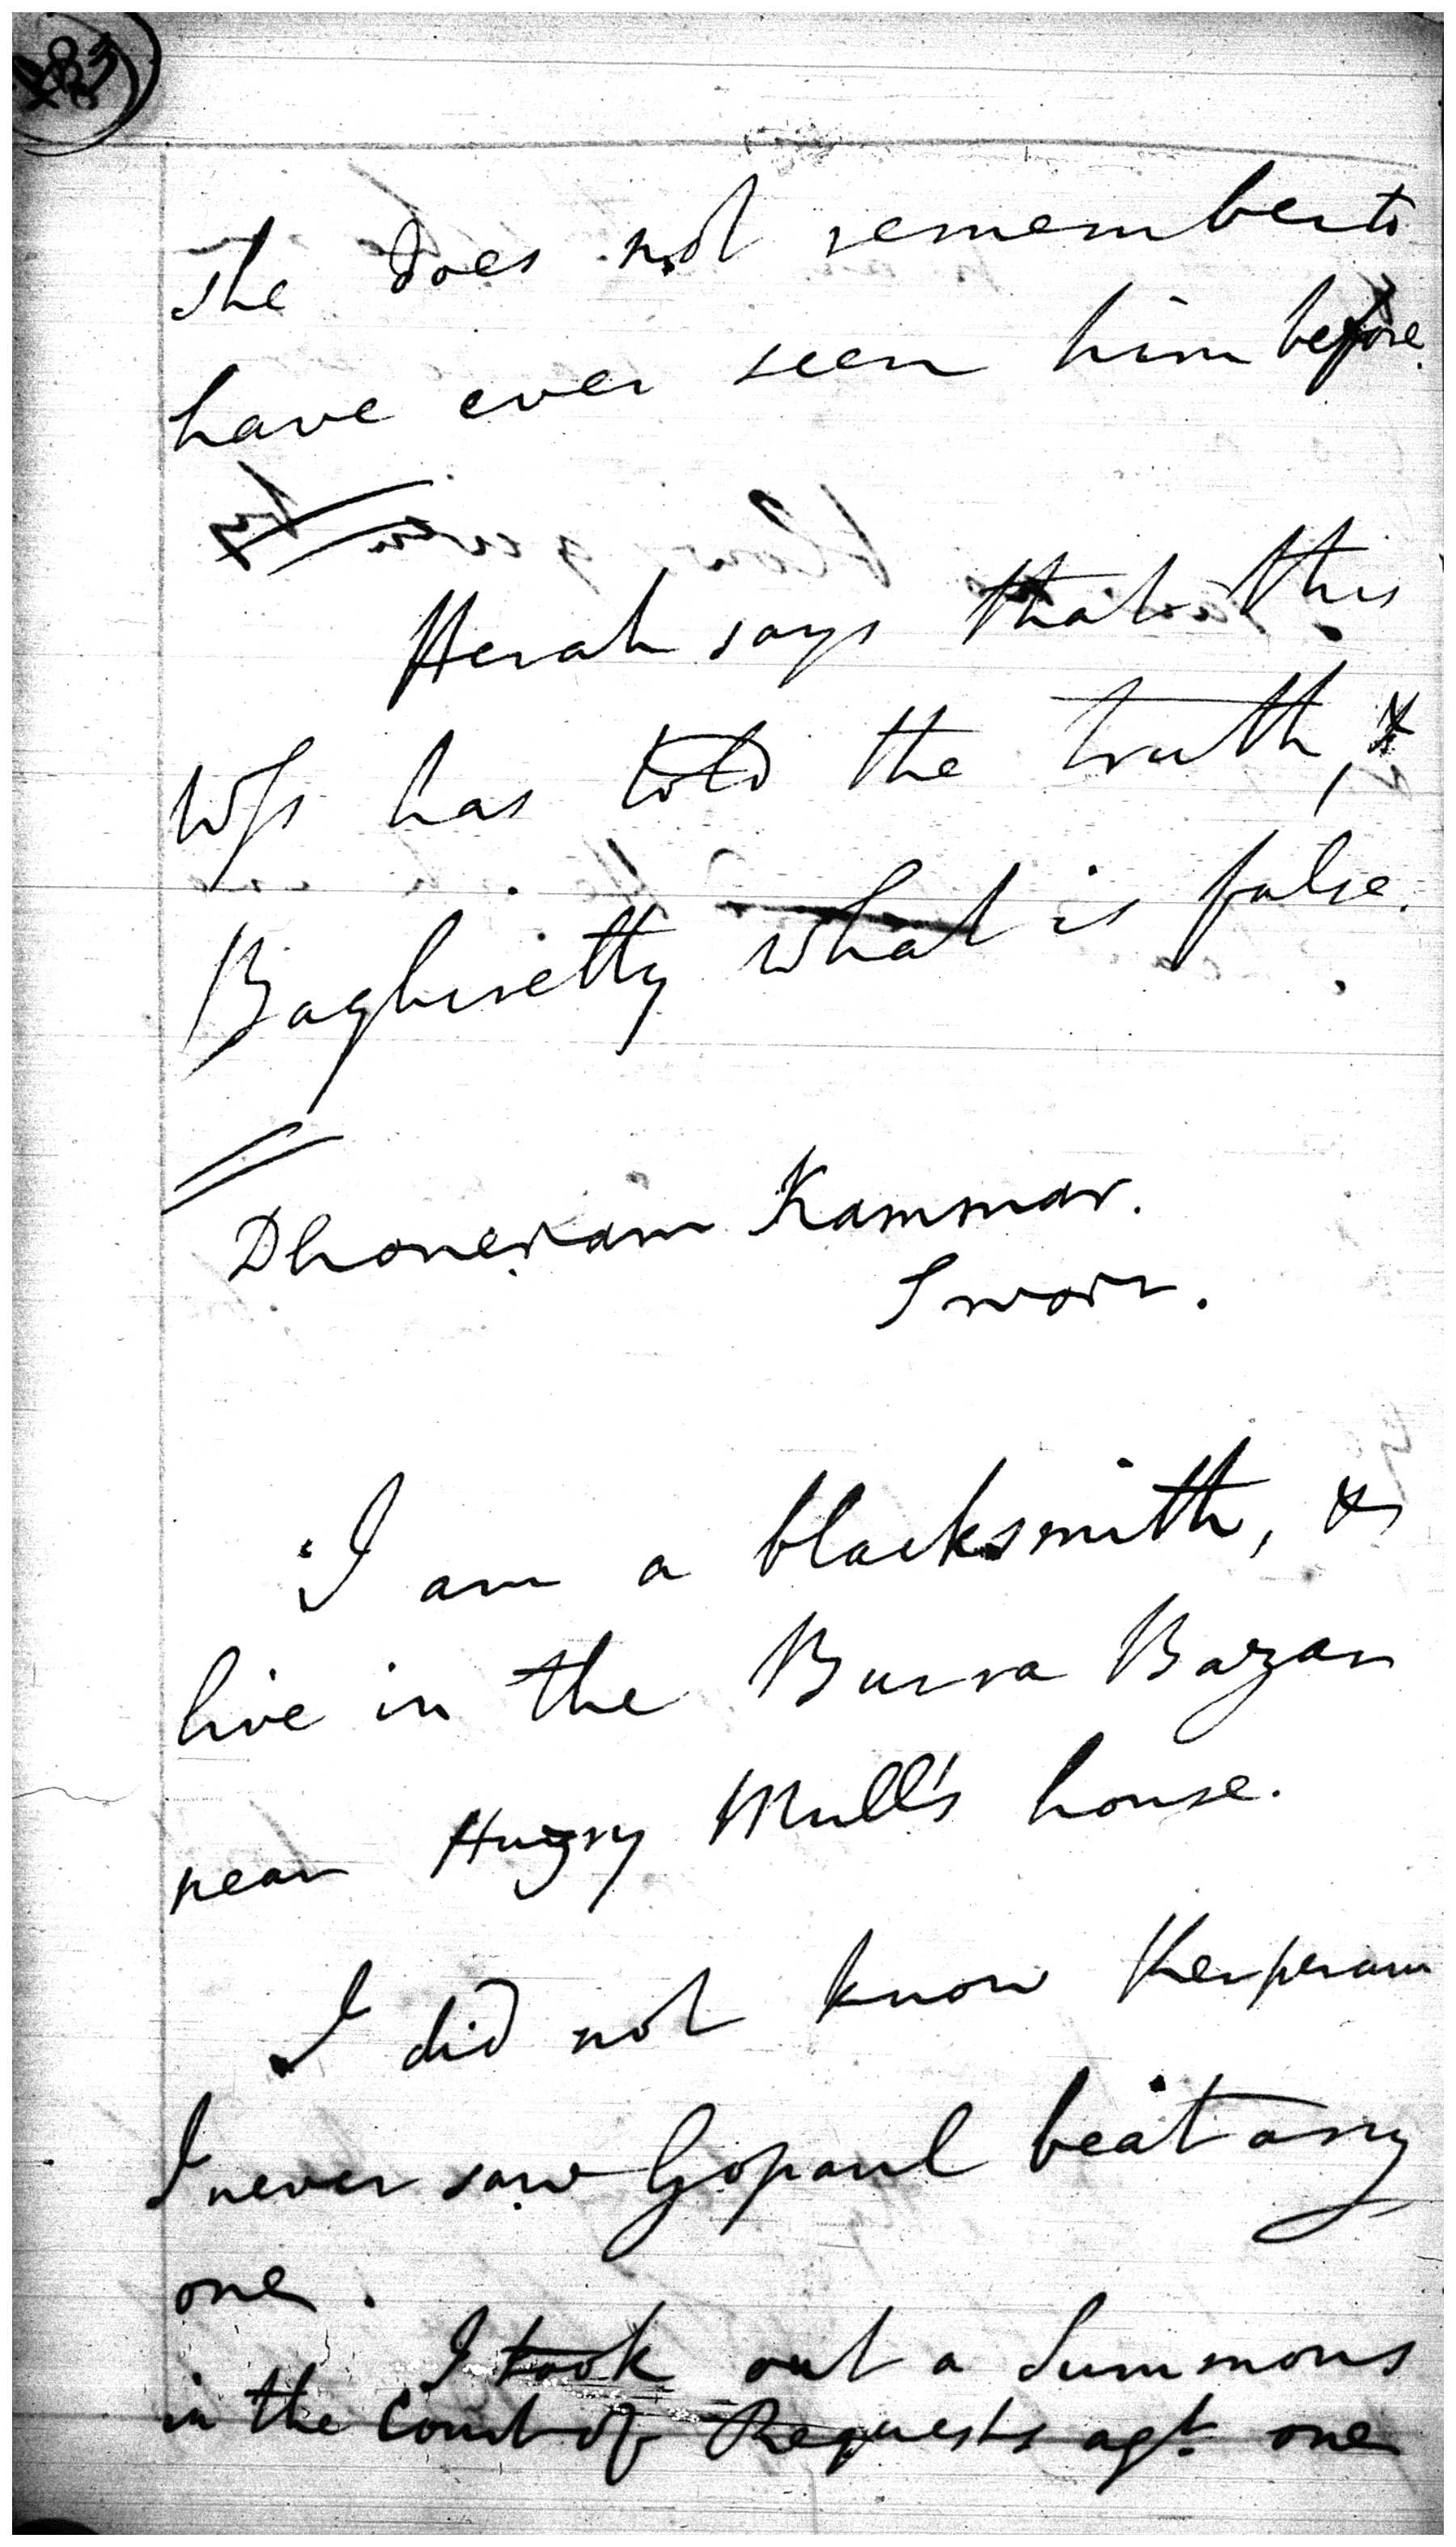 she does not remember to
have ever seen him before.
Herah says that this
Wss has told the truth, &
Baghiretty what is false.
Dhoneram Kammar.
Sworn.
I am a blacksmith, &
live in the Burra Bazar
near Huzry Mull's house.
I did not know Kerperam
I never saw Gopaul beat any
one.
I took out a Summons
in the Court of Requests agt. one